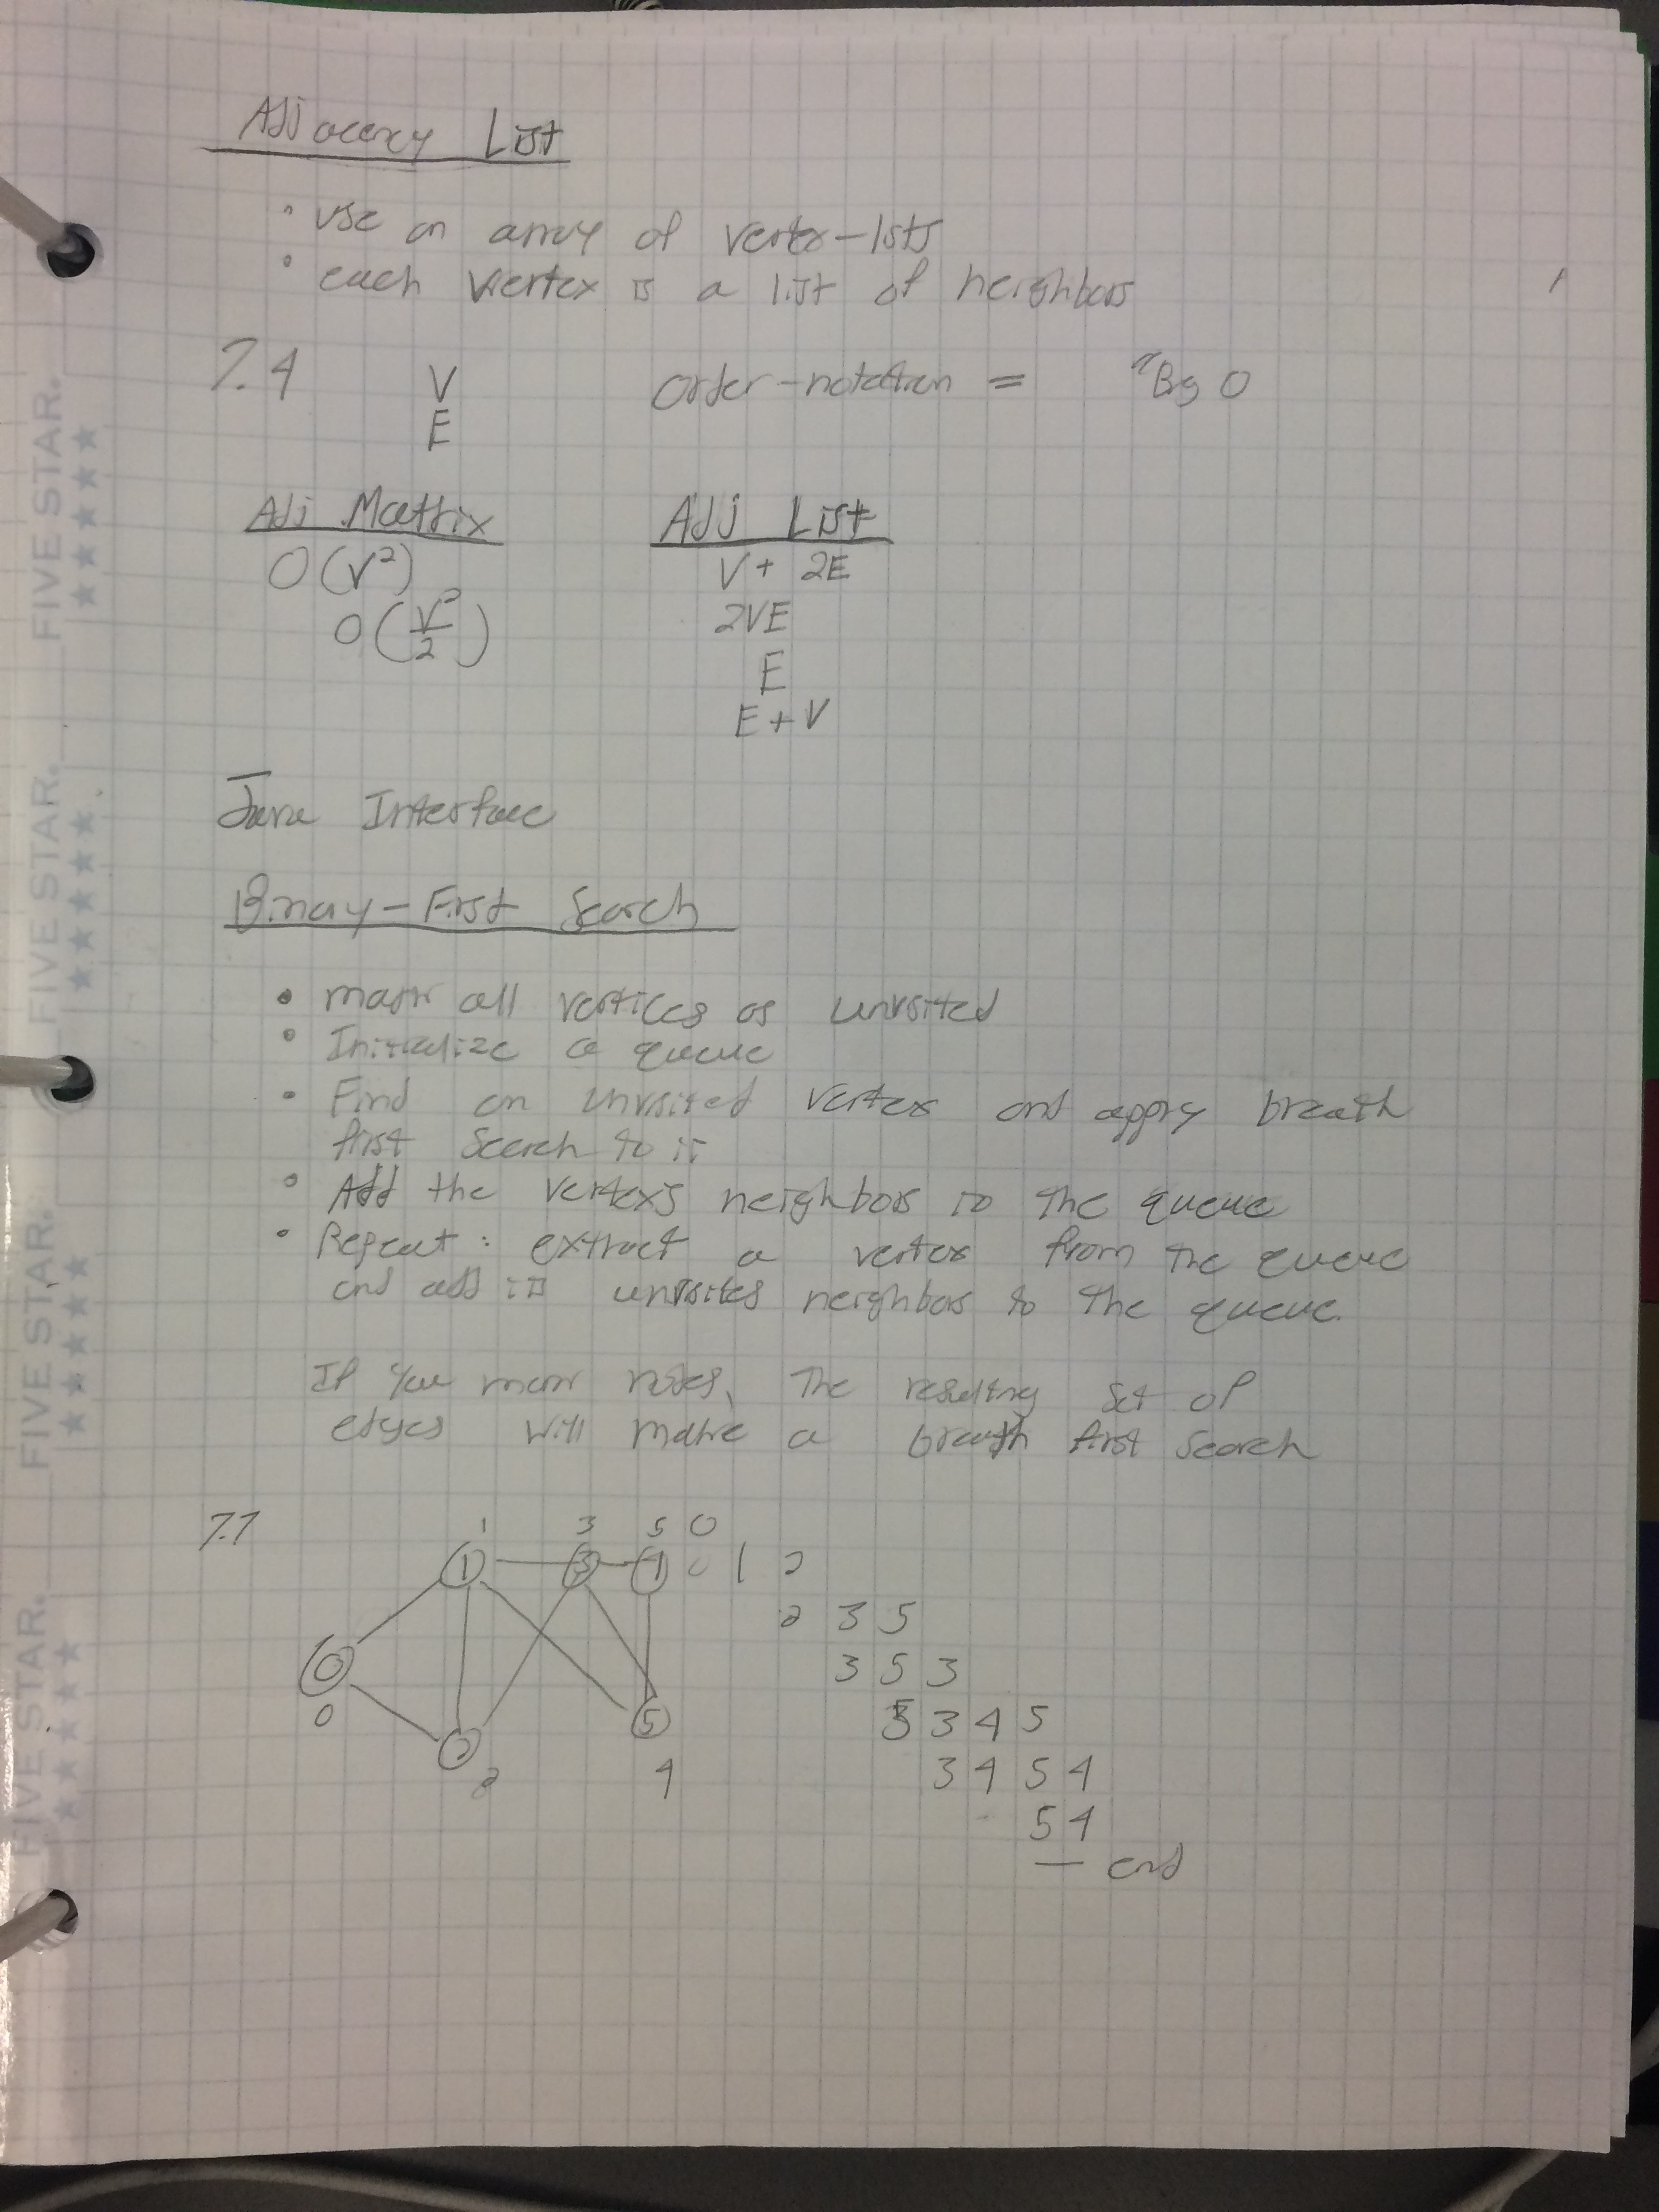 Adjacency List
• use an array of vertex-lists
• each vertex is a list of neighbors
7.4 V order-notation = "Big O
E
Adj Matrix Adj List
O(V²) V + 2E
O(V²/2) 2VE
E
E + V
Java Interface
Binary-First Search
• mark all vertices as unvisited
• Initialize a queue
• Find an unvisited vertex and apply breath
first search to it
• Add the vertex's neighbors to the queue
• Repeat: extract a vertex from the queue
and add its unvisited neighbors to the queue.
If you mark nodes, the resulting set of
edges will make a breath first search
7.7 1 3 5 0
1 3 1 0 1 2
2 3 5
0 3 5 3
0 5 5 3 4 5
2 2 4 3 4 5 4
5 4
— end
FIVE STAR.
FIVE STAR.
FIVE STAR.
FIVE STAR.